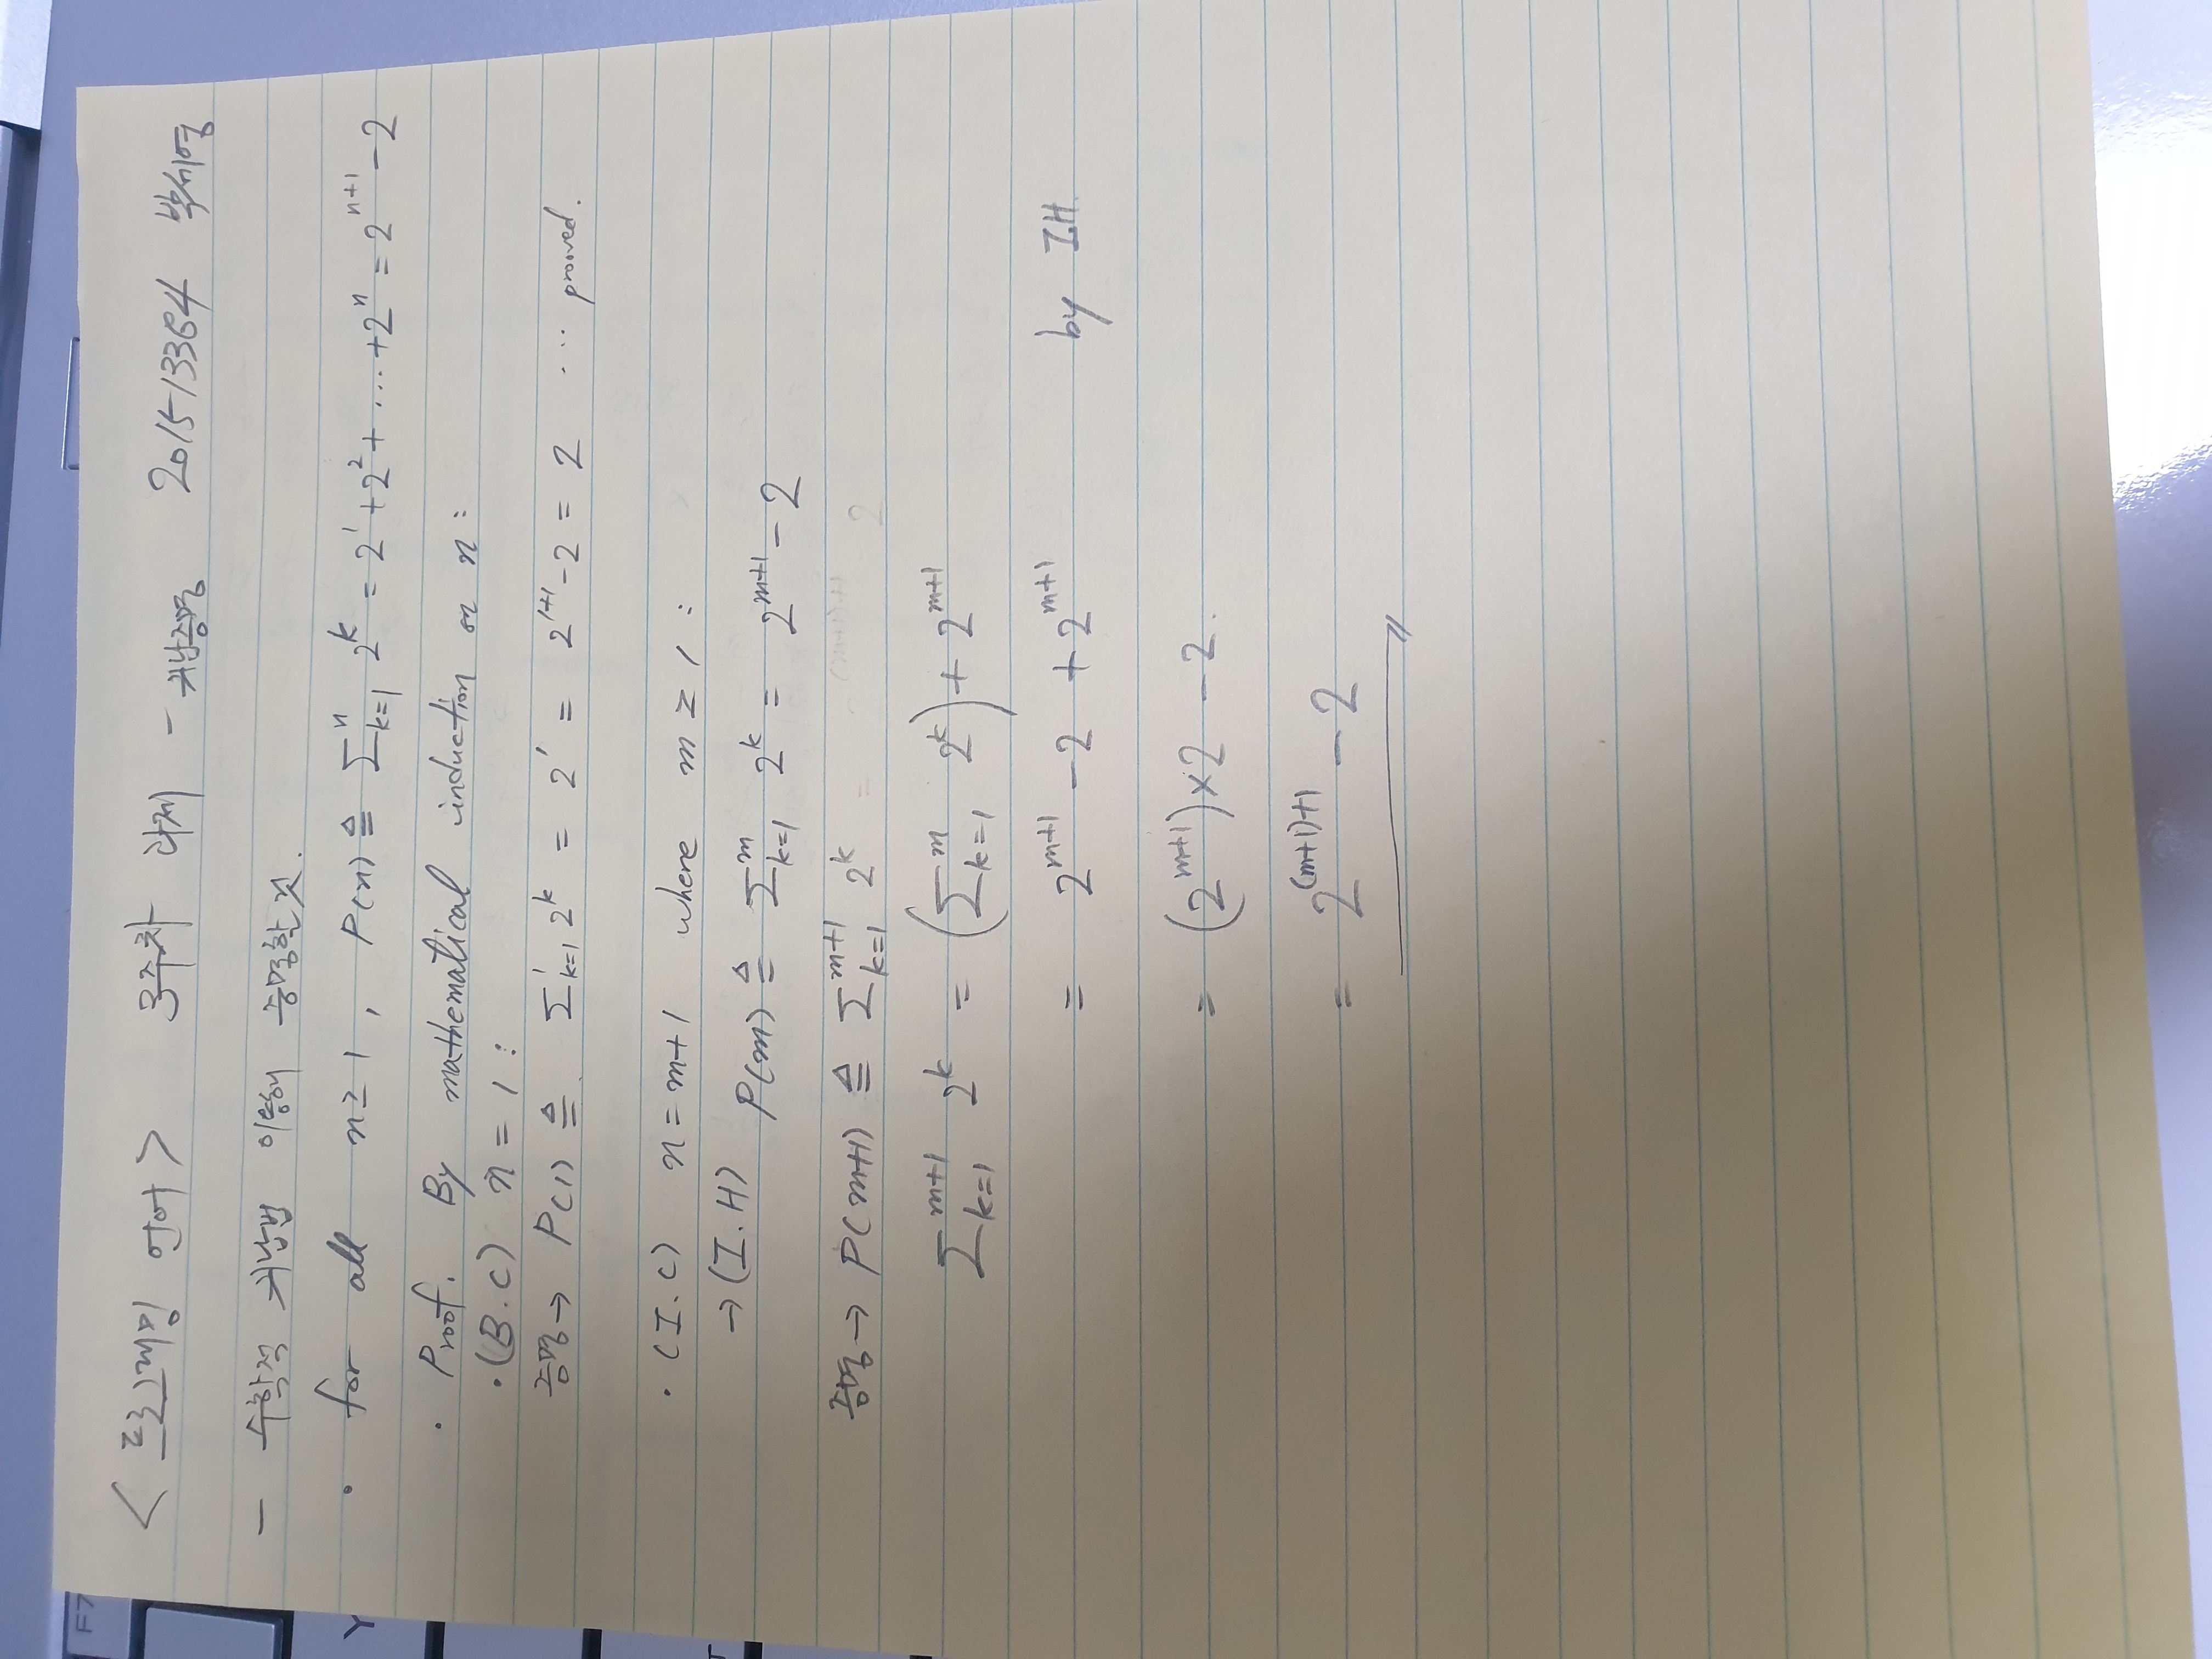 F7
Y
< 프로그래밍 언어 > 3주차 과제 - 귀납증명 201513364 박세영
- 수학적 귀납법 이용해 증명할 것.
· for all n ≥ 1, P(n) ≜ Σₖ₌₁ⁿ 2ᵏ = 2¹ + 2² + ... + 2ⁿ = 2ⁿ⁺¹ - 2
· Proof. By mathematical induction on n :
· (B.C) n = 1 :
증명→ P(1) ≜ Σₖ₌₁¹ 2ᵏ = 2¹ = 2¹⁺¹ - 2 = 2 ... prooved.
· (I.C) n = m+1 where m ≥ 1 :
→ (I.H) P(m) ≜ Σₖ₌₁ᵐ 2ᵏ = 2ᵐ⁺¹ - 2
증명→ P(m+1) ≜ Σₖ₌₁ᵐ⁺¹ 2ᵏ
Σₖ₌₁ᵐ⁺¹ 2ᵏ = (Σₖ₌₁ᵐ 2ᵏ) + 2ᵐ⁺¹
= 2ᵐ⁺¹ - 2 + 2ᵐ⁺¹ by I.H.
= (2ᵐ⁺¹) × 2 - 2.
= 2⁽ᵐ⁺¹⁾⁺¹ - 2